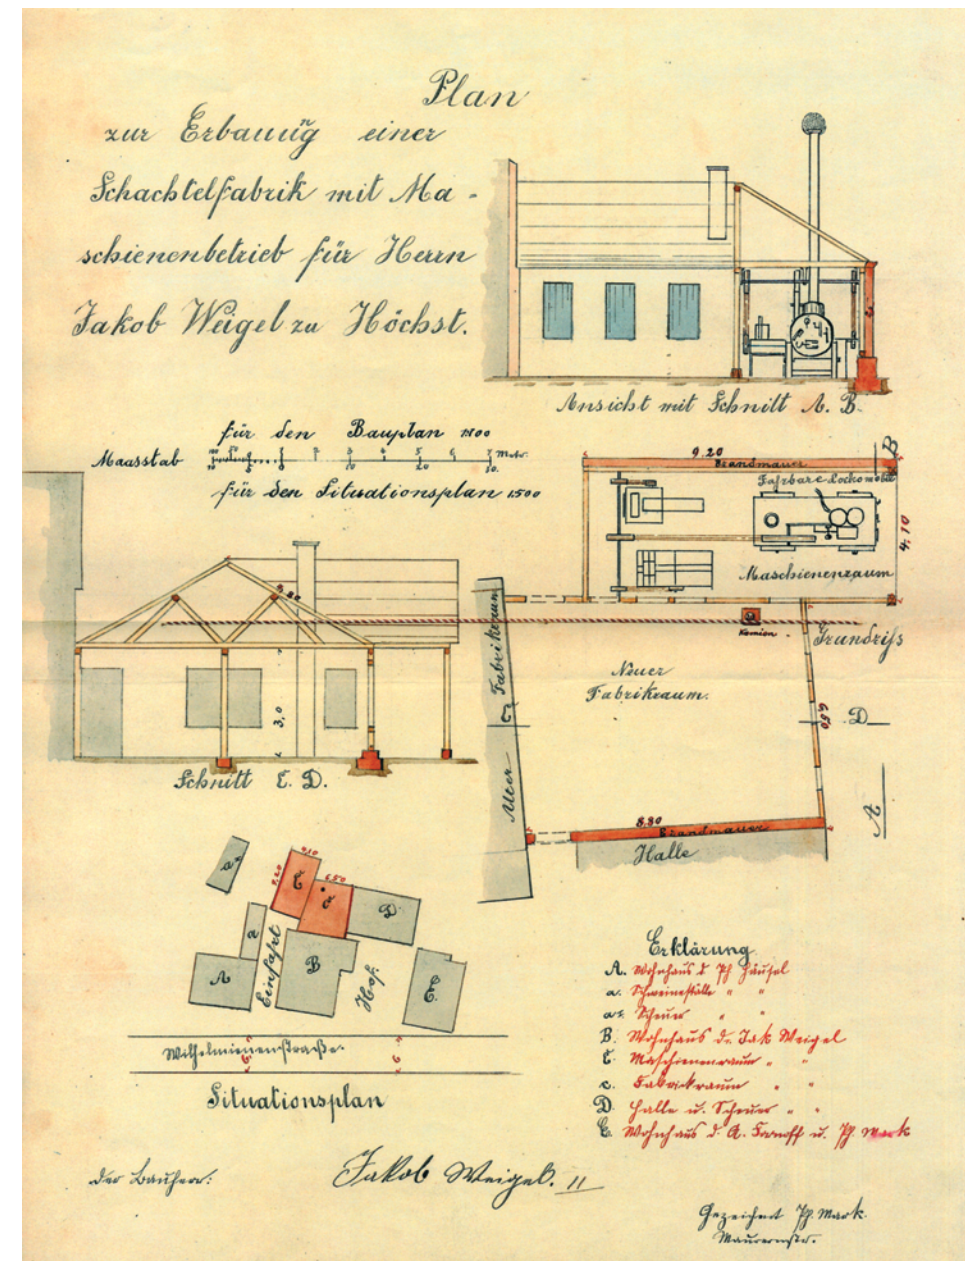 Plan
zur Erbauung einer
Schachtelfabrik mit Ma-
schienenbetrieb für Herrn
Jakob Weigel zu Höchst.
Ansicht mit Schnitt A. B.
für den Bauplan 1:100
Maasstab
1 2 3 4 5 6 7 Metr.
10 20 30.
für den Situationsplan 1:500
B
9.20
Brandmauer
Fahrbare Lockomobil
4,10
Maschienenraum
Kamien
Grundriss
5,80
3,0
Schnitt C. D.
Alter Fabrikraum
C
Neuer
Fabrikraum.
6,50
D
A
8.80
Brandmauer
Halle
a²
4,10
9,20
C
6,50
c
D
a
A
Einfahrt
B
Hof.
E
Wilhelmienenstraße.
6 6
Situationsplan
Erklärung
A. Wohnhaus d. Ph Häusel
a. Schweineställe " "
a². Scheuer " "
B. Wohnhaus d. Jak Weigel
C. Maschienenraum " "
c. Fabrickraum " "
D. Halle u. Scheuer " "
E. Wohnhaus d. A. Fornoff u. Ph. Mark
Der Bauherr:
Jakob Weigel. II
Gezeichnet Ph. Mark.
Maurermstr.